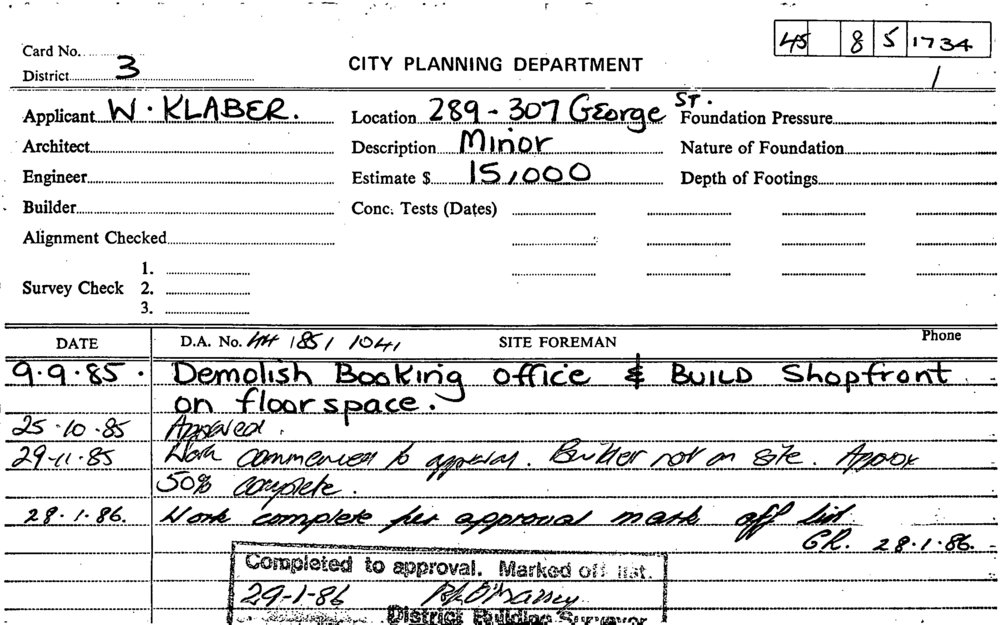 45 8 5 1734
Card No.
District 3
CITY PLANNING DEPARTMENT
1
Applicant W. KLABER. Location 289-307 George ST. Foundation Pressure
Architect Description Minor Nature of Foundation
Engineer Estimate $ 15,000 Depth of Footings
Builder Conc. Tests (Dates)
Alignment Checked
1.
Survey Check 2.
3.
DATE D.A. No. 44 1851 1041 SITE FOREMAN Phone
9.9.85. Demolish Booking office & BUILD Shopfront
on floor space.
25.10.85 Approved.
29-11-85 Work commenced to approval. Builder not on site. Approx
50% complete.
28.1.86. Work complete per approval mark off list
GR. 28.1.86.
Completed to approval. Marked off list.
29-1-86
District Building Surveyor